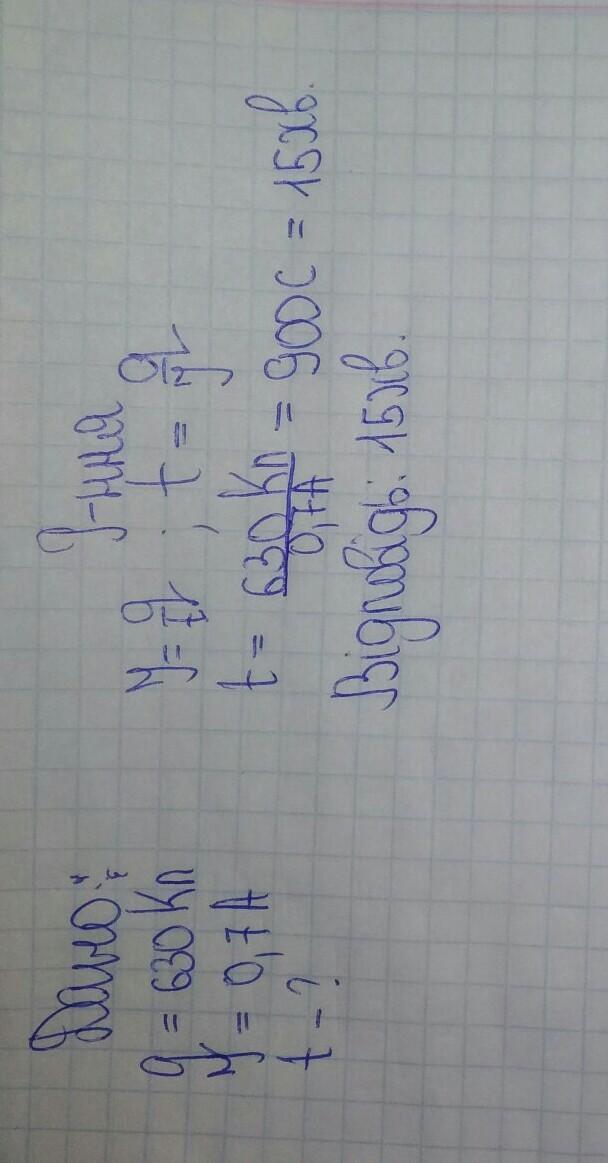 Дано:
q = 630 Кл
У = 0,7 А
t - ?
Р-ння
У = q/t ; t = q/У
t = 630 Кл/0,7 А = 900 с = 15 хв.
Відповідь: 15 хв.